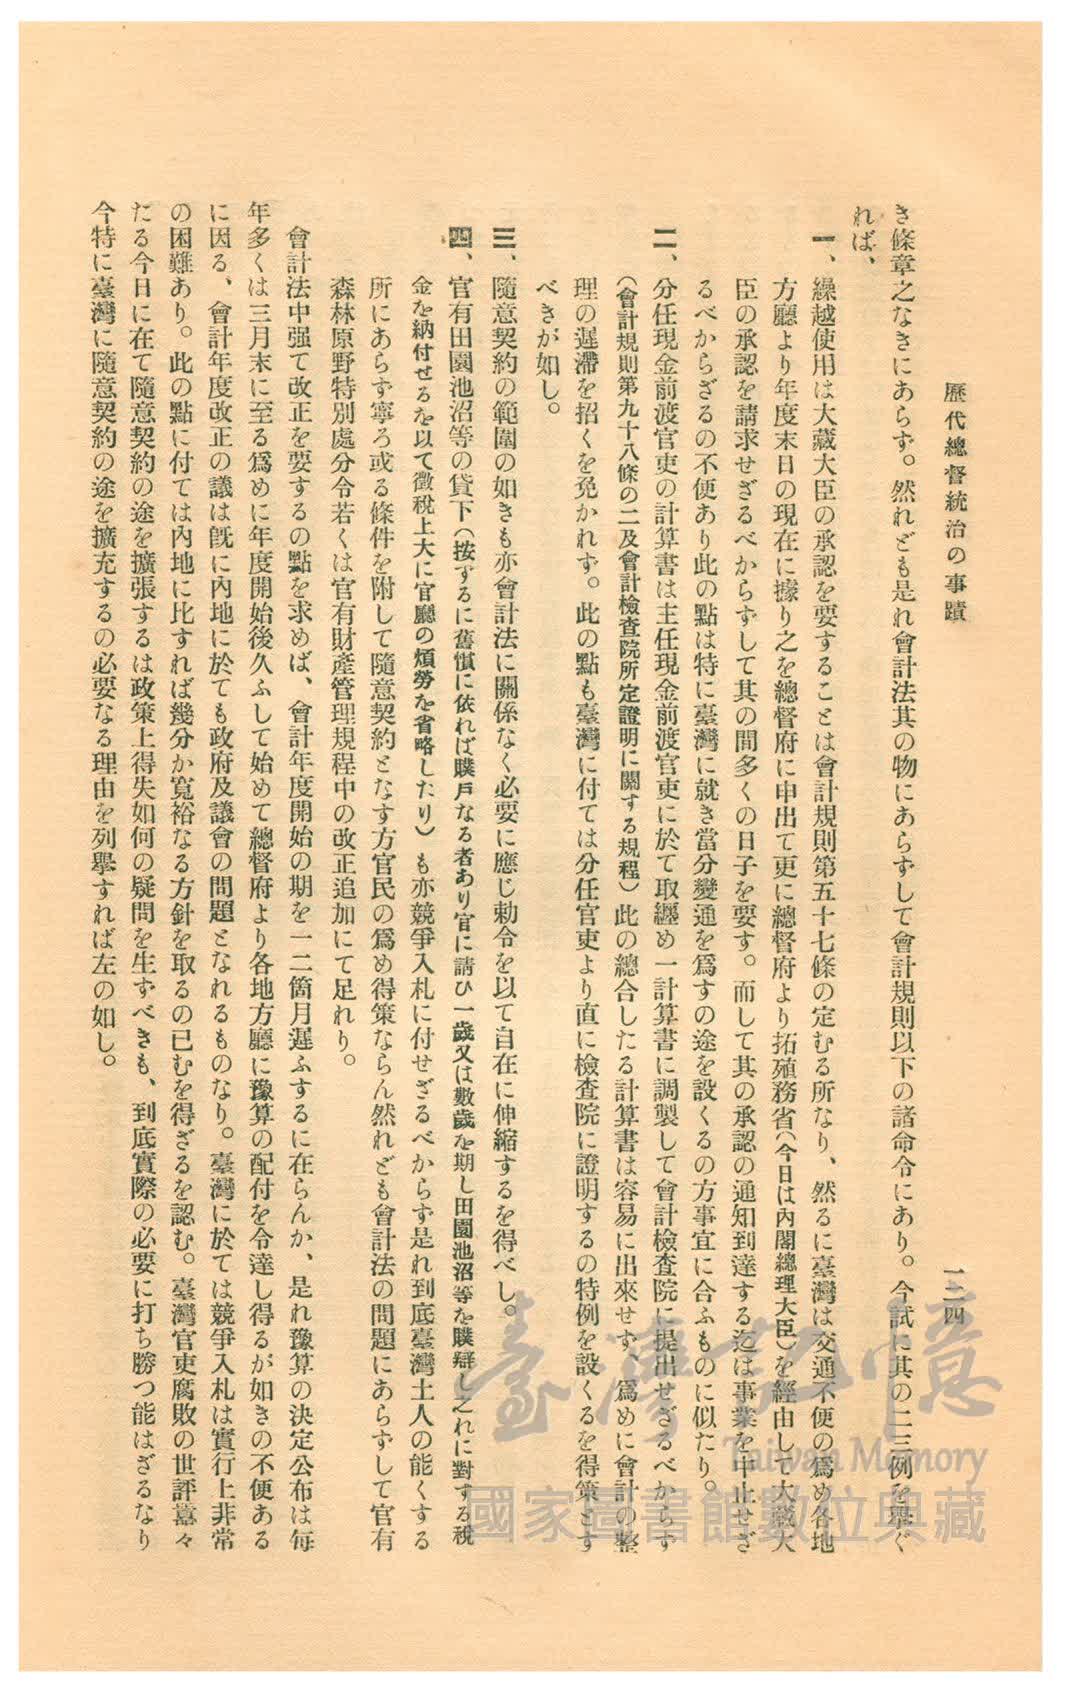 歷代總督統治の事蹟
一二四
き條章之なきにあらず。然れども是れ會計法其の物にあらずして會計規則以下の諸命令にあり。今試に其の二三例を擧ぐ
れば、
一、繰越使用は大藏大臣の承認を要することは會計規則第五十七條の定むる所なり、然るに臺灣は交通不便の爲め各地
方廳より年度末日の現在に據り之を總督府に申出て更に總督府より拓殖務省(今日は內閣總理大臣)を經由して大藏大
臣の承認を請求せざるべからずして其の間多くの日子を要す。而して其の承認の通知到達する迄は事業を中止せざ
るべからざるの不便あり此の點は特に臺灣に就き當分變通を爲すの途を設くるの方事宜に合ふものに似たり。
二、分任現金前渡官吏の計算書は主任現金前渡官吏に於て取纏め一計算書に調製して會計檢查院に提出せざるべからず
(會計規則第九十八條の二及會計檢查院所定證明に關する規程)此の總合したる計算書は容易に出來せず、爲めに會計の整
理の遲滯を招くを免かれず。此の點も臺灣に付ては分任官吏より直に檢查院に證明するの特例を設くるを得策とす
べきが如し。
三、隨意契約の範圍の如きも亦會計法に關係なく必要に應じ勅令を以て自在に伸縮するを得べし。
四、官有田園池沼等の貸下(按ずるに舊慣に依れば贌戶なる者あり官に請ひ一歲又は數歲を期し田園池沼等を贌辦し之れに對する稅
金を納付せるを以て徵稅上大に官廳の煩勞を省略したり)も亦競爭入札に付せざるべからず是れ到底臺灣土人の能くする
所にあらず寧ろ或る條件を附して隨意契約となす方官民の爲め得策ならん然れども會計法の問題にあらずして官有
森林原野特別處分令若くは官有財產管理規程中の改正追加にて足れり。
會計法中强て改正を要するの點を求めば、會計年度開始の期を一二箇月遲ふするに在らんか、是れ豫算の決定公布は每
年多くは三月末に至る爲めに年度開始後久ふして始めて總督府より各地方廳に豫算の配付を令達し得るが如きの不便ある
に因る、會計年度改正の議は旣に內地に於ても政府及議會の問題となれるものなり。臺灣に於ては競爭入札は實行上非常
の困難あり。此の點に付ては內地に比すれば幾分か寬裕なる方針を取るの已むを得ざるを認む。臺灣官吏腐敗の世評囂々
たる今日に在て隨意契約の途を擴張するは政策上得失如何の疑問を生ずべきも、到底實際の必要に打ち勝つ能はざるなり
今特に臺灣に隨意契約の途を擴充するの必要なる理由を列擧すれば左の如し。
臺灣記憶
Taiwan Memory
國家圖書館數位典藏